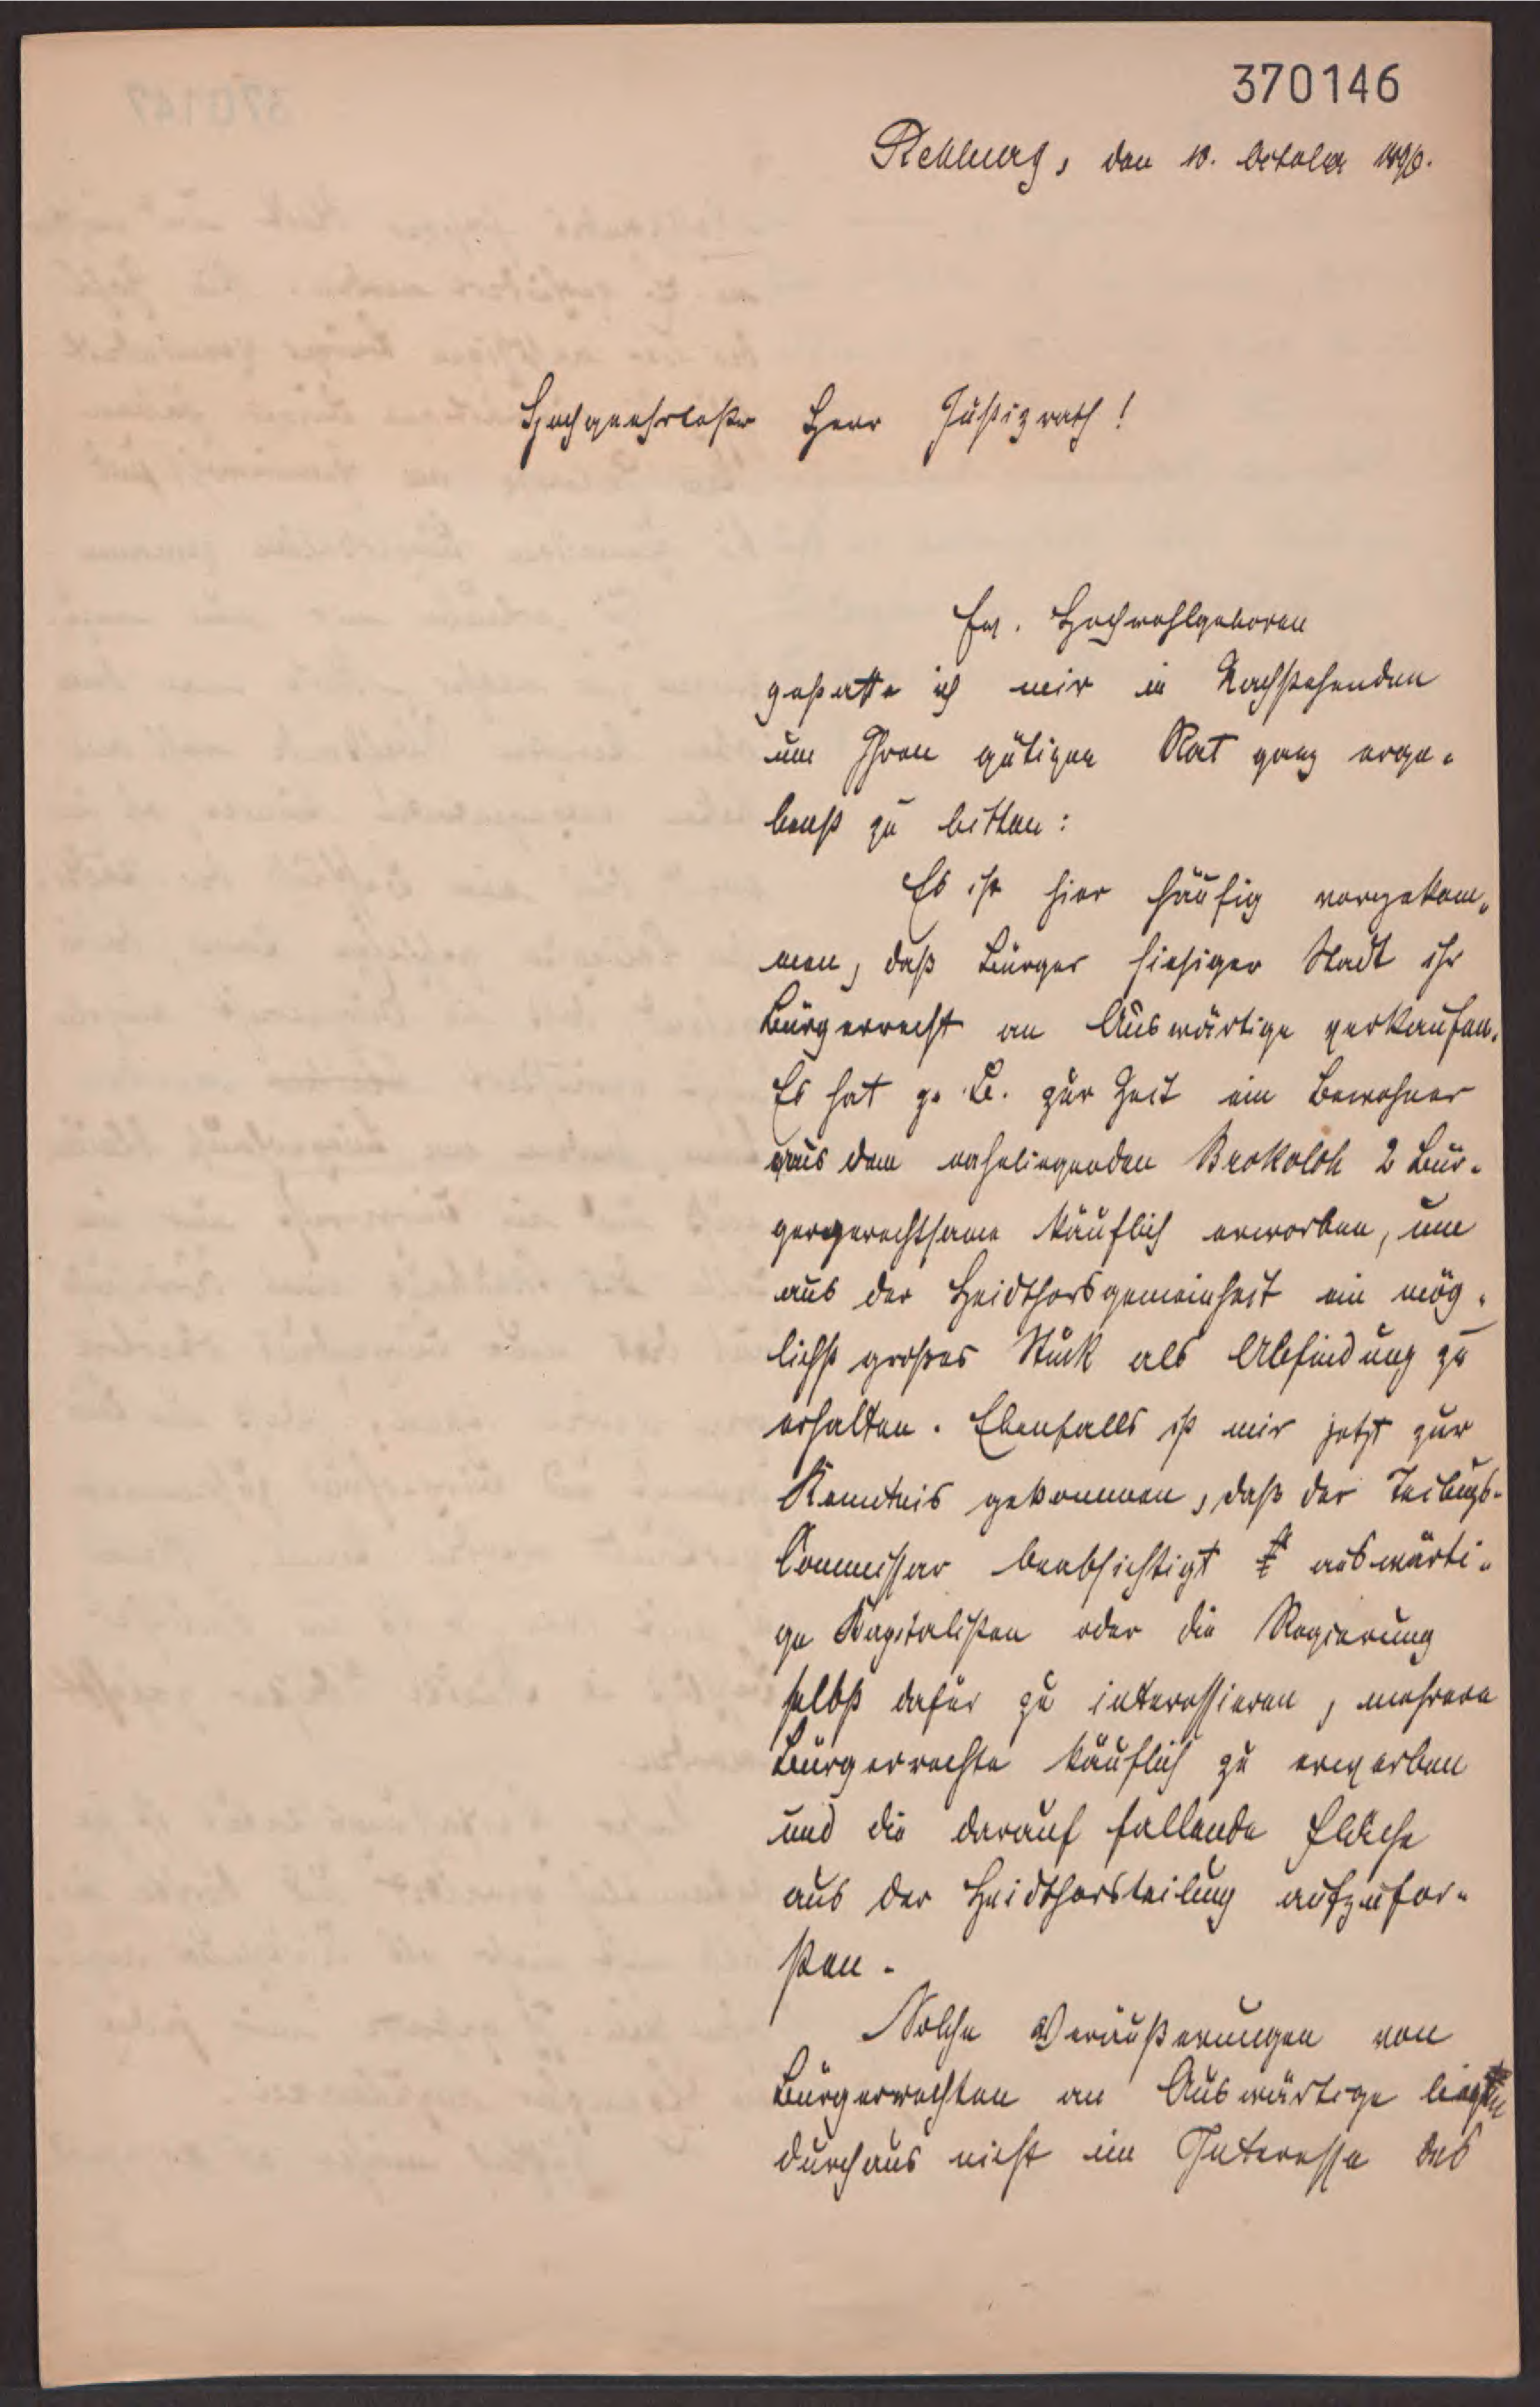 370146
Rehburg, den 10. October 1896.
Hochgeehrtester Herr Justizrath!
Ew. Hochwohlgeboren
gestatte ich mir in Nachstehenden
um Ihren gütigen Rat ganz erge-
benst zu bitten:
Es ist hier häufig vorgekom-
men, daß Bürger hiesiger Stadt ihr
Bürgerrecht an Auswärtige verkaufen.
Es hat z. B. zur Zeit ein Bewohner
aus dem naheliegenden Brokeloh 2 Bür-
gergerechtsame käuflich erworben, um
aus der Heidthorsgemeinheit ein mög-
lichst großes Stück als Abfindung zu
erhalten. Ebenfalls ist mir jetzt zur
Kenntnis gekommen, daß der Teilungs-
Commissar beabsichtigt auswärti-
ge Kapitalisten oder die Regierung
selbst dafür zu interessieren, mehrere
Bürgerrechte käuflich zu erwerben
und die darauf fallende Fläche
aus der Heidthorsteilung aufzufor-
sten.
Solche Veräußerungen von
Bürgerrechten an Auswärtige liegen
durchaus nicht im Interesse des